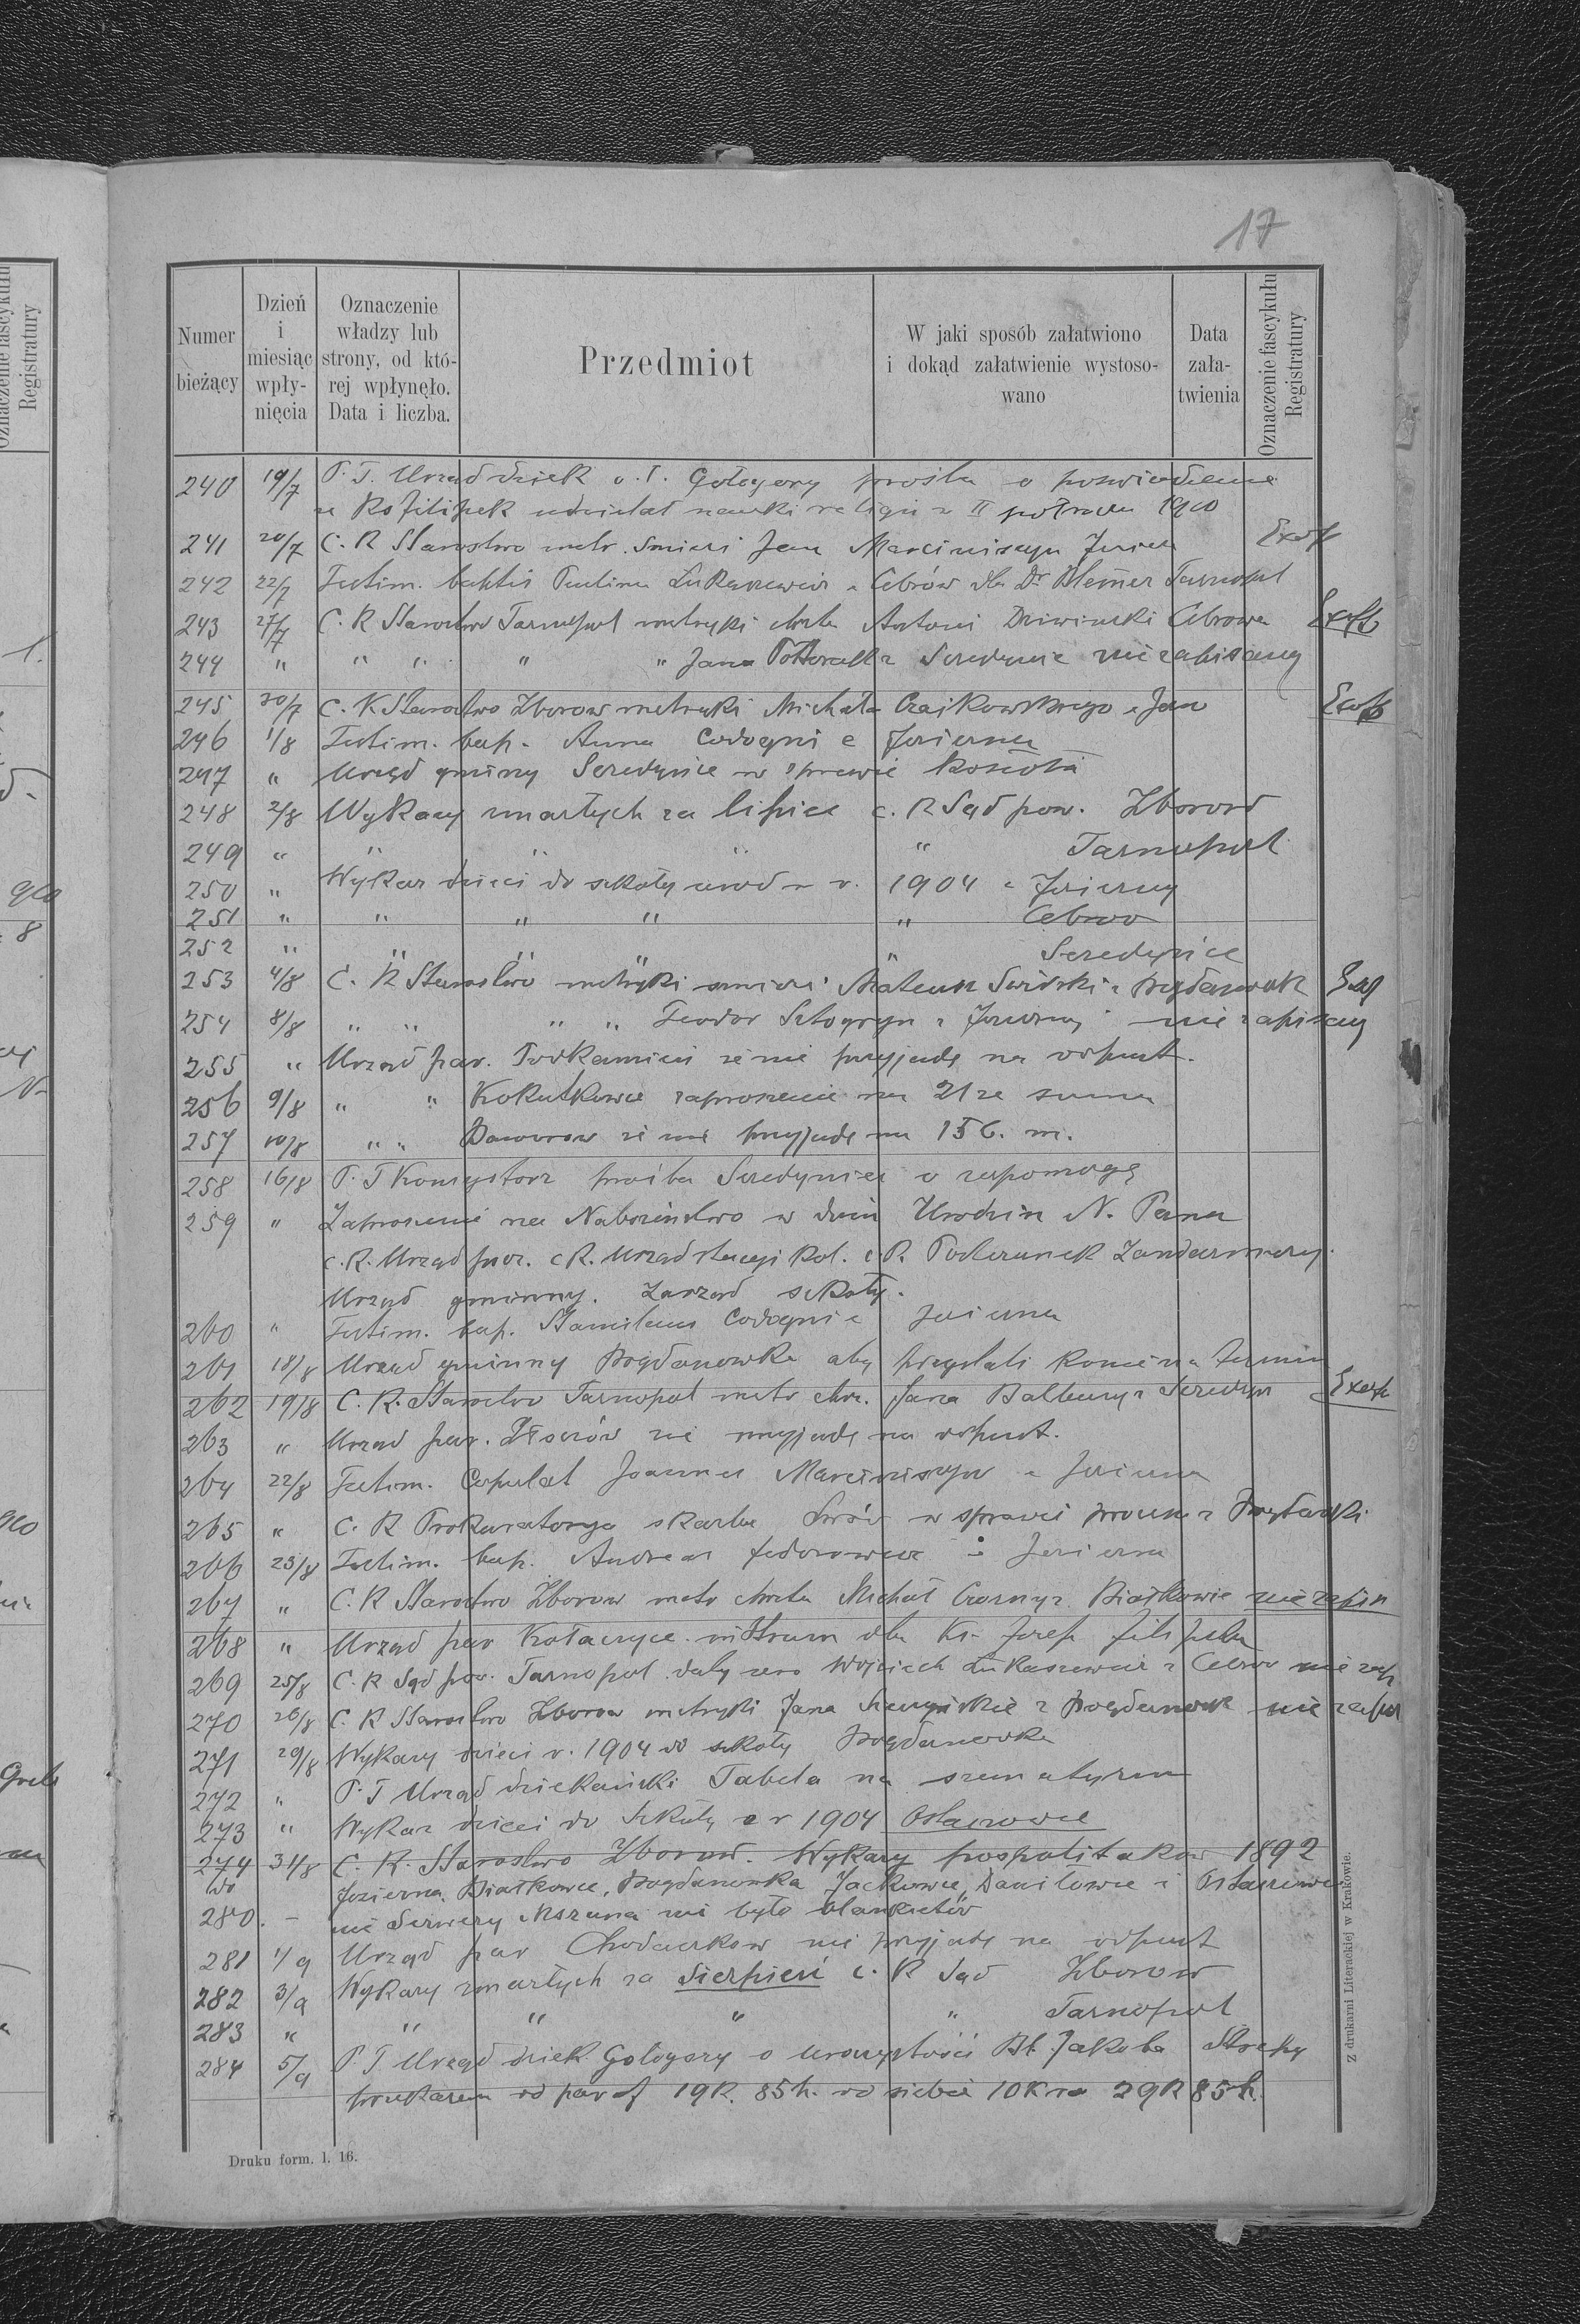 17
Numer bieżący
Dzień i miesiąc wpły-nięcia
Oznaczenie władzy lub strony, od któ-rej wpłynęło. Data i liczba.
Przedmiot
W jaki sposób załatwiono i dokąd załatwienie wystoso-wano
Data zała-twienia
Oznaczenie fascykułu Registratury
240 19/7 P. T. Urząd dziek o. ł. Gołogory prośba o poswiadczenie
ze Ks Filipek udzielał nauki religii w II półroczu 1910
241 20/7 C. K Starostwo metr. smierci Jan Marciniszyn Exoff
242 22/7 Testim. Paulina Łukaszewicz Cebrów dla Dr Tarnopol
243 27/7 C. K Starostwo Tarnopol metryki chrztu Antoni Cebrowa Exoff
244 " " " " " Jana z Seredynie nie zapisany
245 30/7 C. K Starostwo Zborow metryki Michała Czajkowskiego Exoff
246 1/8 Testim. bap. Anna e Jezierna
247 " Urząd gminy Seredynce w sprawie Kościoła
248 2/8 Wykazy zmarłych za lipiec c. K Sąd pow. Zborow
249 " " " " " Tarnopol
250 " Wykaz dzieci do szkoły urod w r. 1904 z Jezierny
251 " " " " " Cebrow
252 " " " " Seredynce
253 4/8 C. K Starostwo metryki smierci Mateusz z Bogdanówk
254 8/8 " " " " Teodor z Jezierny nie zapisany
255 " Urząd par. Podkamień że nie przyjadę na odpust.
256 9/8 " " Kokutkowce zaproszenie na 21 ze suma
257 10/8 " " Baworow że nie przyjadę na 15 b. m.
258 16/8 P. T Konsystorz prośba Seredyniec o zapomogę
259 " Zaproszenie na Nabożeństwo w dniu Urodzin N. Pana
c. K. Urząd pocz. c K. Urząd stacyi Kol. c K. Posterunek Żandarmeryi.
Urząd gminny. Zarząd szkoły.
260 " Testim. bap. Stanislaus e Jezierna
261 18/8 Urząd gminny Bogdanowka aby na termin
262 19/8 C. K. Starostwo Tarnopol metr chrz. Jana z Seredyn
263 " Urząd par. nie przyjadę na odpust.
264 22/8 Testim. Copulat Joannes Marciniszyn e Jezierna
265 " C. K Prokuratorya skarbu Lwów w sprawie
266 23/8 Testim. bap. Andreas Fedorowicz Jezierna
267 " C. K Starostwo Zborow metr chrztu Michał Czorny z Białkowic nie zapisn
268 " Urząd par Kołaczyce dla Ks. Józefa Filipka
269 25/8 C. K Sąd pow. Tarnopol Wojciech Łukaszewicz z Cebrow nie zap.
270 26/8 C. K Starostwo Zborow metryki Jana z Bogdanowk nie zapis
271 29/8 Wykazy dzieci r. 1904 do szkoły Bogdanowka
272 " P. T Urząd dziekański Tabela na szematyzm
273 " Wykaz dzieci do Szkoły z r 1904 Ostaszowce
274 31/8 C. K. Starostwo Zborow. Wykazy pospolitakow 1892
do Jezierna, Białkowce, Bogdanowka Jackowce, Daniłowce i Ostaszowce
280. – nie było blankietów
281 1/9 Urząd par Chodaczkow nie przyjadę na odpust
282 3/9 Wykazy zmarłych za Sierpień c. K Sąd Zborow
283 " " " " " Tarnopol
284 5/9 P. T. Urząd dziek Gologory o uroczystości Bł. Jakoba Strepy
od paraf 19 K. 85 h. od siebie 10 K 29 K 85 h.
Druku form. l. 16.
Z drukarni Literackiej w Krakowie.